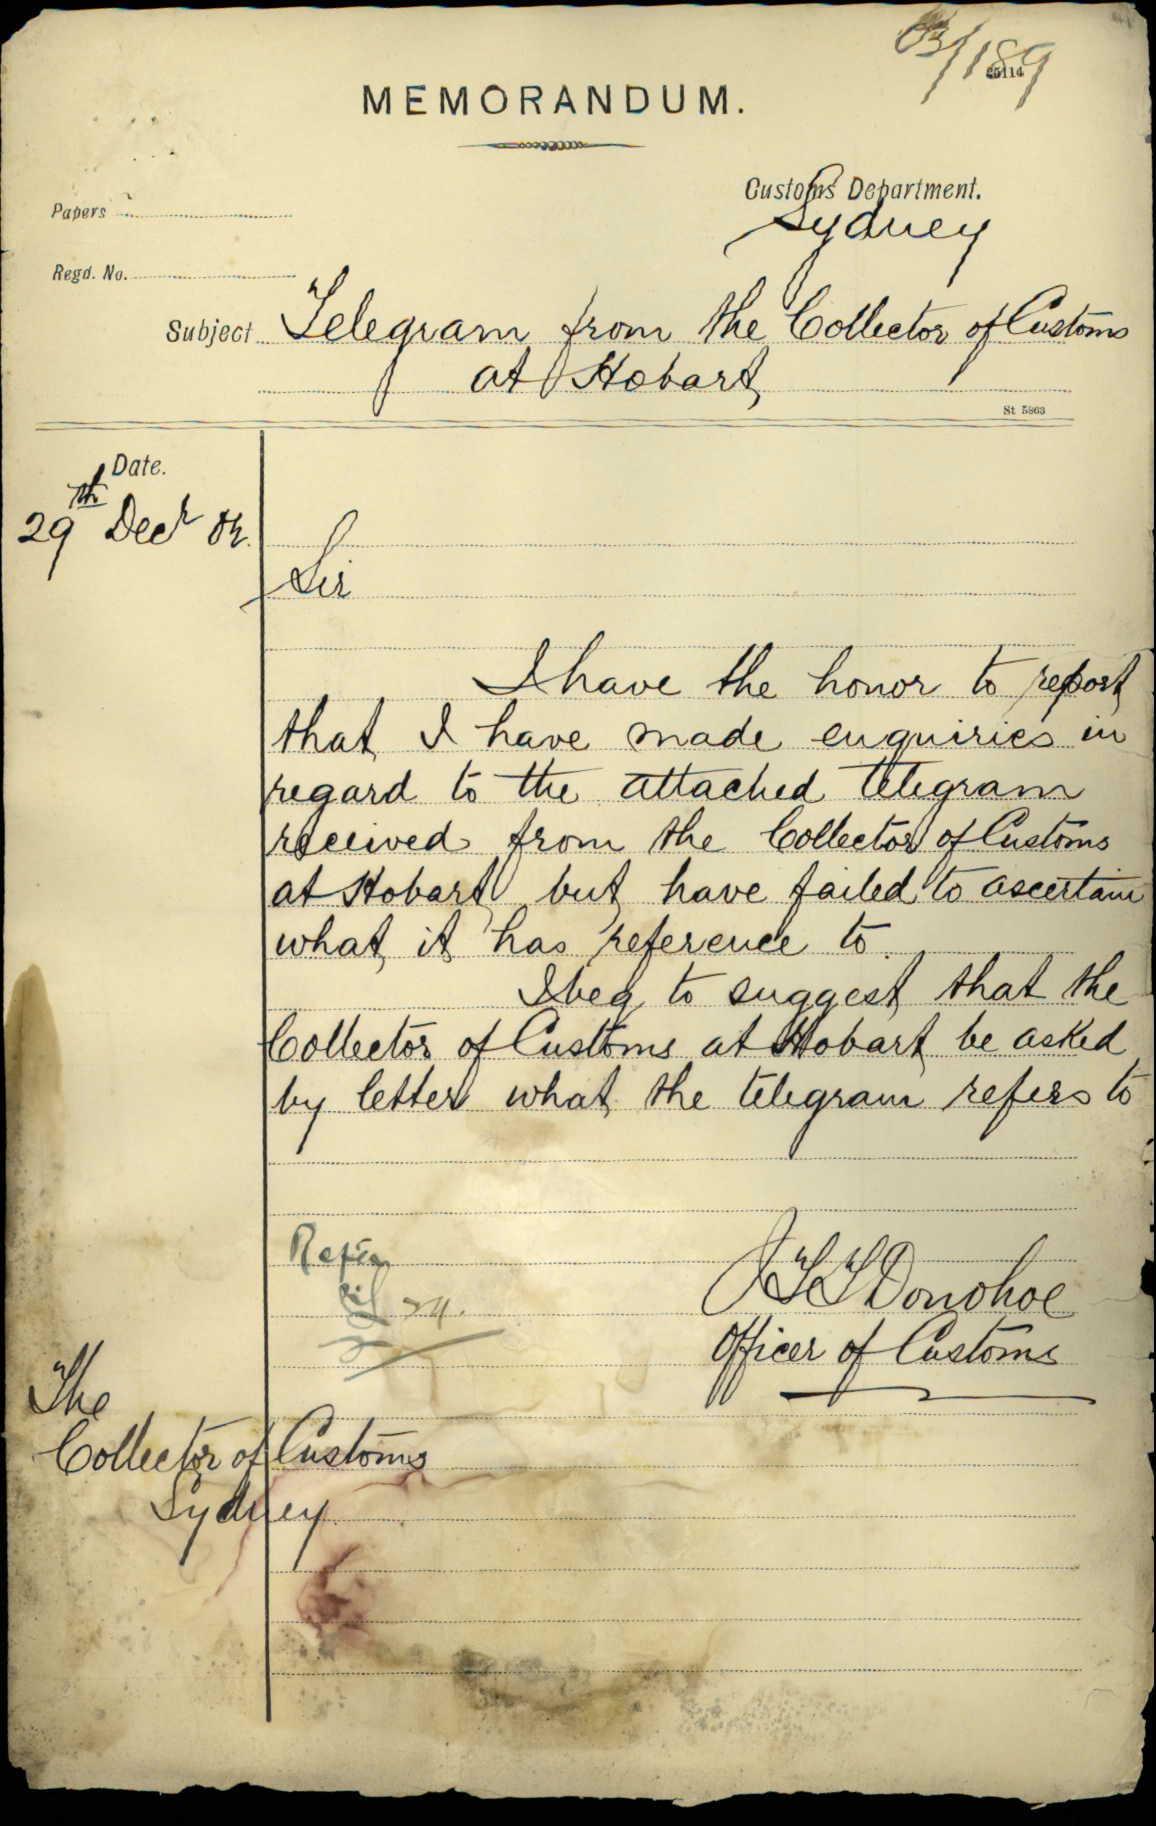 03/189
MEMORANDUM.
Customs Department.
Sydney
Papers
Regd. No.
Subject Telegram from the Collector of Customs
at Hobart
St 5863
Date.
29th Decr 02.
Sir
I have the honor to report
that I have made enquiries in
regard to the attached telegram
received from the Collector of Customs
at Hobart but have failed to ascertain
what it has reference to.
I beg to suggest that the
Collector of Customs at Hobart be asked
by letter what the telegram refers to
J T T Donohoe
Officer of Customs
The
Collector of Customs
Sydney